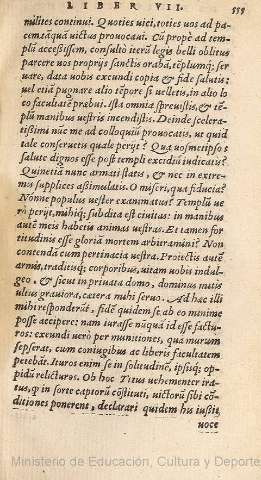 LIBER VII. 559
milites continui. Quoties uici, toties uos ad pa-
cem, tãquã uictus prouocaui. Cũ ꝓpè ad tem-
plũ accessissem, consultò iterũ legis belli oblitus
parcere uos proprijs sanctis orabã, tẽplumq; ser
uare, data uobis exeundi copia & fide salutis:
uel etiã pugnare alio tẽpore si uelletis, in alio lo
co facultatẽ præbui. Ista omnia spreuistis, & tẽ-
plũ manibus uestris incendistis. Deinde scelera-
tißimi nũc me ad colloquiũ prouocatis, ut quid
tale conseruetis quale perijt? Qua uosmetipsos
salute dignos esse post templi excidiũ iudicatis?
Quinetiã nunc armati statis, & nec in extre-
mis supplices aßimulatis. O miseri, qua fiducia?
Nonne populus uester exanimatus? Templũ ue
rò perijt, mihiq; subdita est ciuitas: in manibus
autẽ meis habetis animas uestras. Et tamen for
titudinis esse gloriã mortem arbitramini? Non
contendã cum pertinacia uestra. Proiectis autẽ
armis, traditisq; corporibus, uitam uobis indul-
geo, & sicut in priuata domo, dominus mitis
ultus grauiora, cætera mihi seruo. Ad hæc illi
mihi responderũt, fidẽ quidem se ab eo minime
posse accipere: nam iurasse nũquã id esse factu-
ros: exeundi uerò per munitiones, qua murum
sepserat, cum coniugibus ac liberis facultatem
petebãt. Ituros enim se in solitudinẽ, ipsiq; op-
pidũ relicturos. Ob hoc Titus uehementer ira-
tus, ꝙ in sorte captorũ cõstituti, uictorũ sibi cõ
ditiones ponerent, declarari quidem his iußit
uoce
Ministerio de Educación, Cultura y Deporte